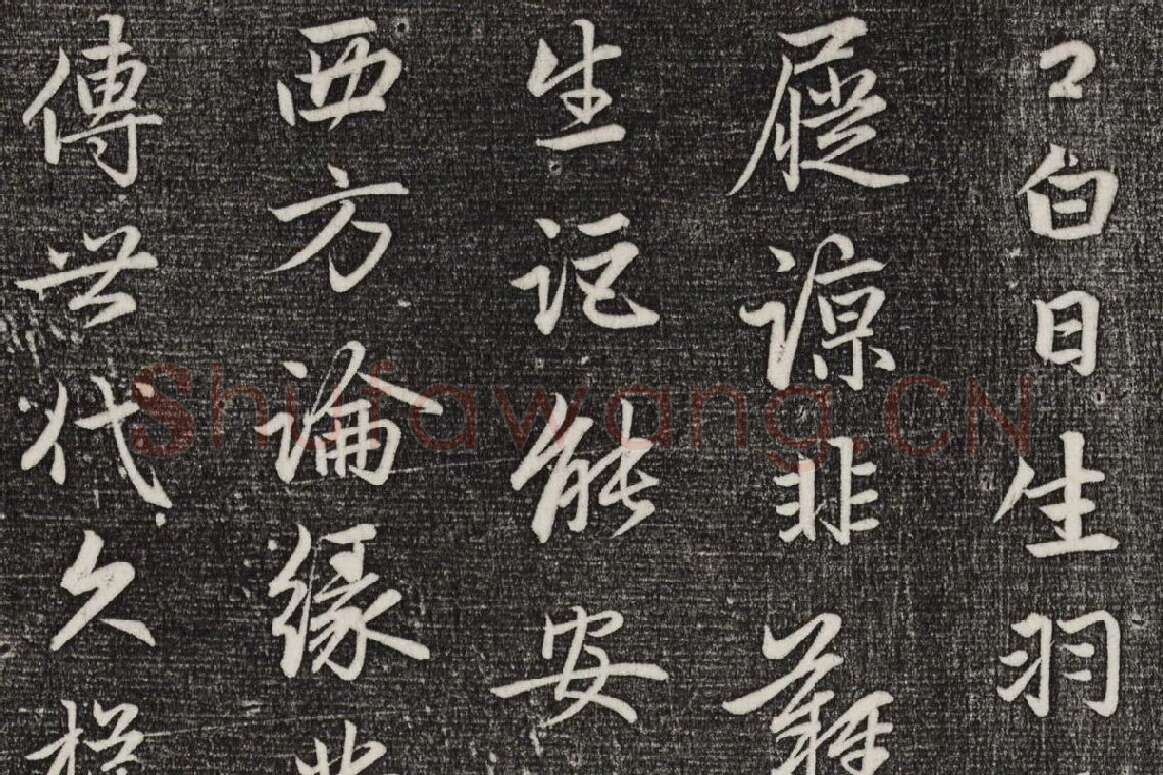 白日生羽
屣諒非難
生詎能安
西方論緣
傳世代久
Shufawang.CN